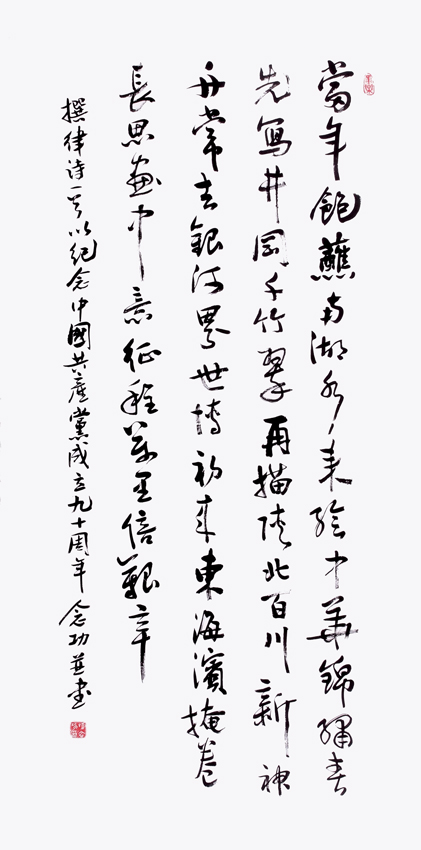 當年飽蘸南湖水來繪中華錦繡春
先寫井岡千竹翠再描陝北百川新神
舟常去銀河界世博初來東海濱掩卷
長思畫中意征程萬里倍艱辛
撰律诗一首以紀念中國共產黨成立九十周年 念功並書